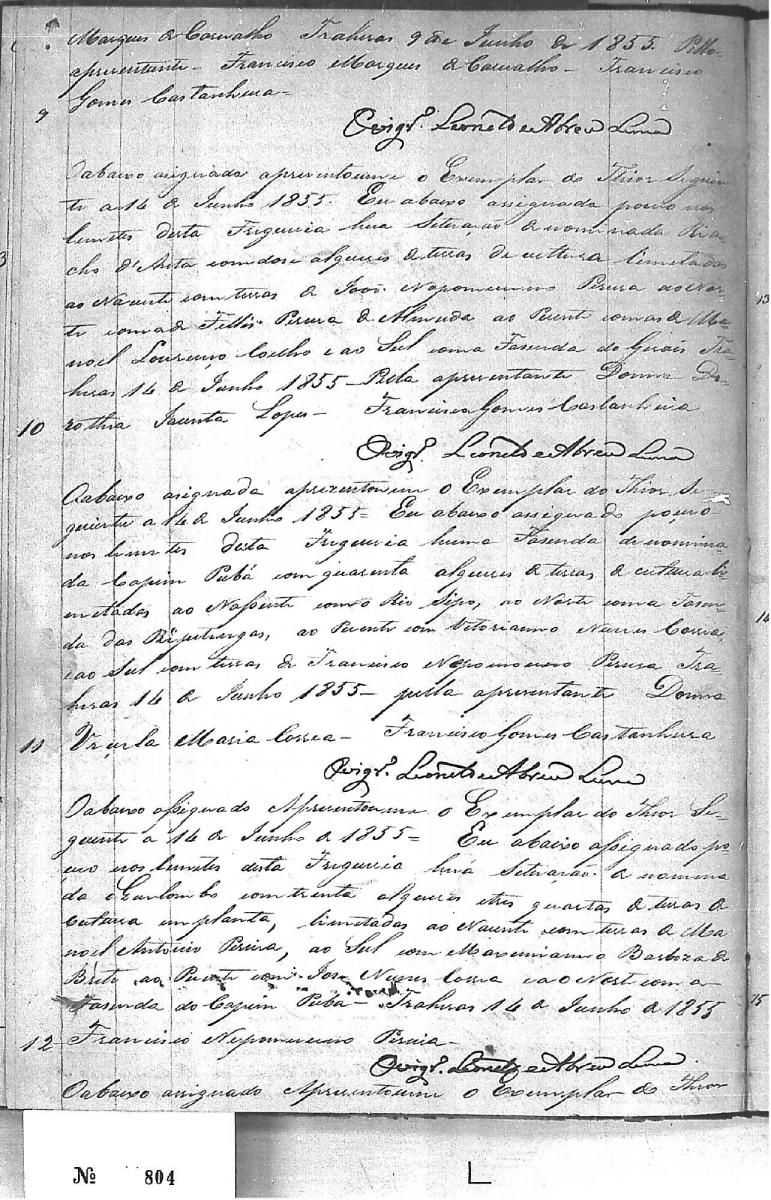 Marques de Carvalho Trahiras 9 de Junho de 1855. Pello
apresentante - Francisco Marques de Carvalho - Francisco
Gomes Castanheira -
9
O vigrº. Leonel de Abreu Lima
Oabaixo asignado apresentoume o Exemplar do Thior Seguin
te a 14 de Junho 1855. Eu abaixo assignada pouso nos
lemetes desta Freguicia hua Setuação denominada Ria
cho d'Arêa com dose alqueres de terras de cultura lemetadas
ao Nacente com terras de João Nepomuceno Pereira ao Nor
te com as de Felles Pereira de Almeida ao Puente com as de Ma
noel Lourenço Coelho e ao Sul com a Fasenda do Gerais Tra
hiras 14 de Junho 1855 - Pela apresentante Donna Do
10 rothea Jacinta Lopes - Francisco Gomes Castanheira
O vigrº. Leonel de Abreu Lima
Oabaixo asignada aprezentoume o Exemplar do Thior Se-
guiente a 14 de Junho 1855 = Eu abaixo assignado pouço
nos lemetes desta Freguicia huma Fasenda denomina
da Capim Pubá com quarenta alqueres de terras de cultura li
metadas ao Nassente com o Rio Sipo, ao Norte com a Fasen
da das Ripetengas, ao Puente com Vetorianno Nunes Correa,
e ao Sul com terras de Francisco Nepomoceno Pereira Tra
hiras 14 de Junho 1855 - pella apresentante Donna
11 Urçula Maria Correa - Francisco Gomes Castanheira
O vigrº. Leonel de Abreu Lima
Oabaixo assignado Apresentoume o Exemplar do Thior Se-
guente a 14 de Junho de 1855 = Eu abaixo assignado po-
çuo nos lemetes desta Freguicia huã Setuação denomina
da o com trenta alqueres e tres quartas de terras de
Cultura em planta, limetadas ao Nacente com terras de Ma
noel Antonio Pereira, ao Sul com Maximianno Barboza de
Brito ao Puente com Jose Nunes Correa e ao Nort com a
Fasenda do Capim Pubá - Trahiras 14 de Junho de 1855
12 Francisco Nepomuceno Pereira -
O vigrº. Leonel de Abreu Lima
Oabaixo assignado Apresentoume o Exemplar do Thior
13
14
15
Nº 804